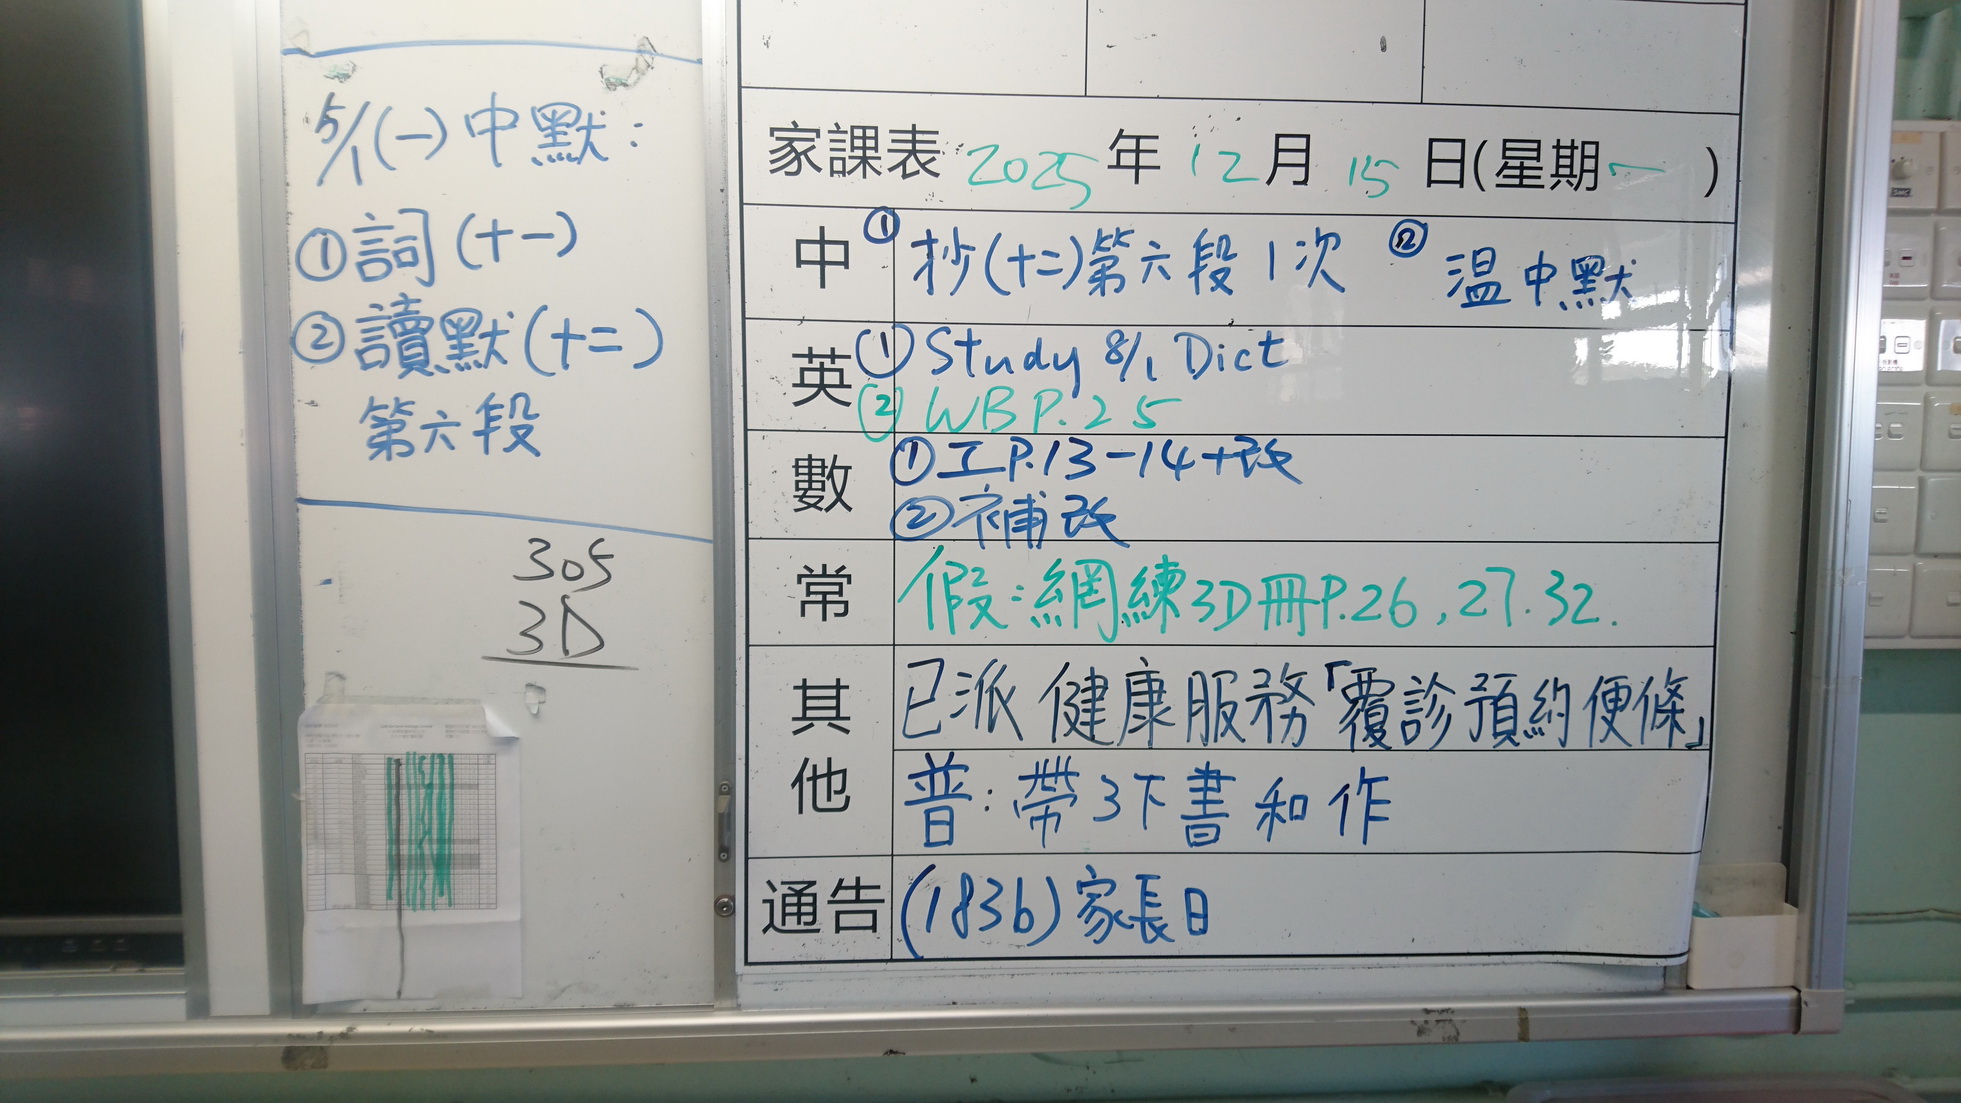 5/1(一)中默：
①詞(十一)
②讀默(十二)
第六段
305
3D
家課表 2025年12月15日(星期一)
中 ①抄(十二)第六段1次 ②温中默
英 ①Study 8/1 Dict
②WB P.25
數 ①工P.13-14+改
②補改
常 假：網練3D冊P.26,27.32.
其他 已派健康服務「覆診預約便條」
普：帶3下書和作
通告 (183b)家長日